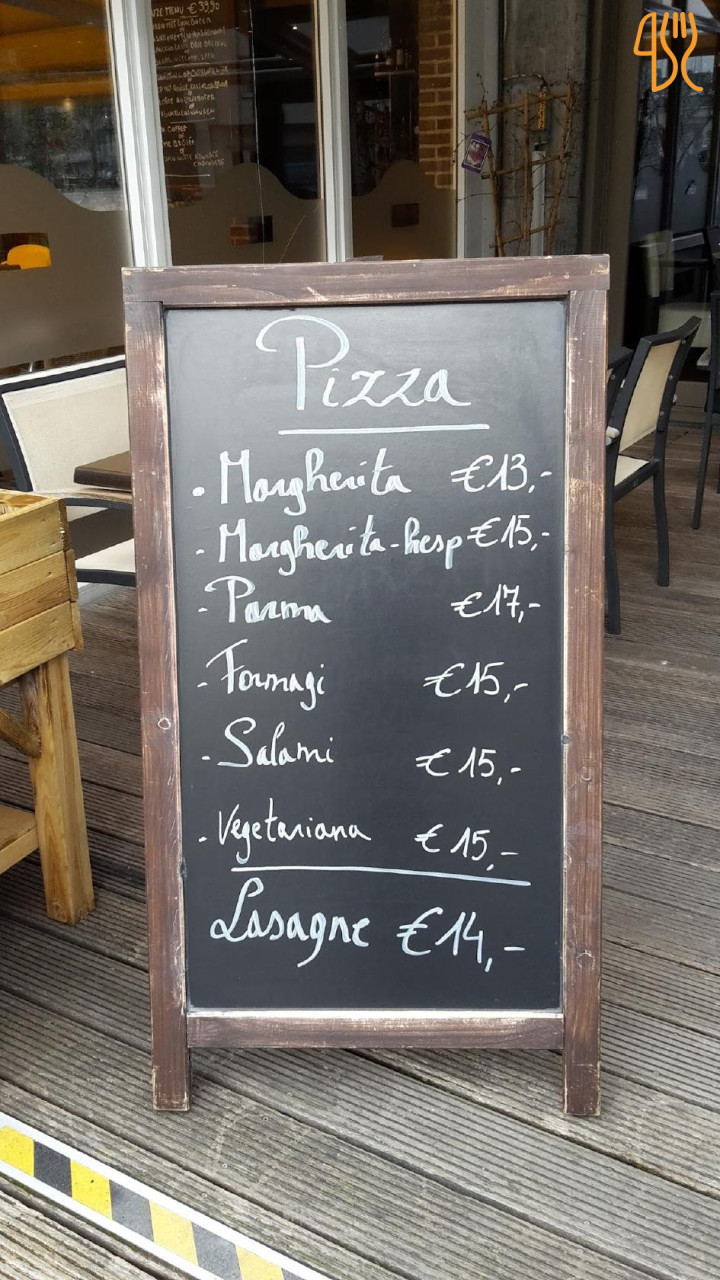 Pizza
• Margherita €13,-
- Margherita-hesp €15,-
- Parma €17,-
- Formagi €15,-
- Salami €15,-
- Vegetariana €15,-
Lasagne €14,-
MENU €39,90